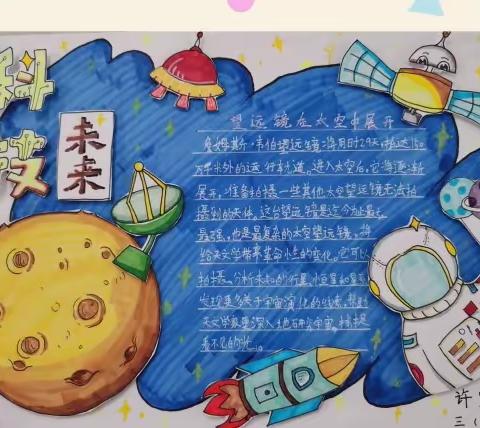 科技
未来
望远镜在太空中展开
詹姆斯·韦伯望远镜将用时29天抵达150
万千米外的运行轨道，进入太空后，它将逐渐
展开，准备拍摄一些其他太空望远镜无法拍
摄到的天体，这台望远镜是迄今为止最大
最强，也是最复杂的太空望远镜，将
给天文学带来革命性的变化，它可以
拍摄、分析未知的行星、恒星和星系
发现更多关于宇宙演化的线索，帮助
天文学家更深入地研究宇宙，捕捉
看不见的光。
许
三（